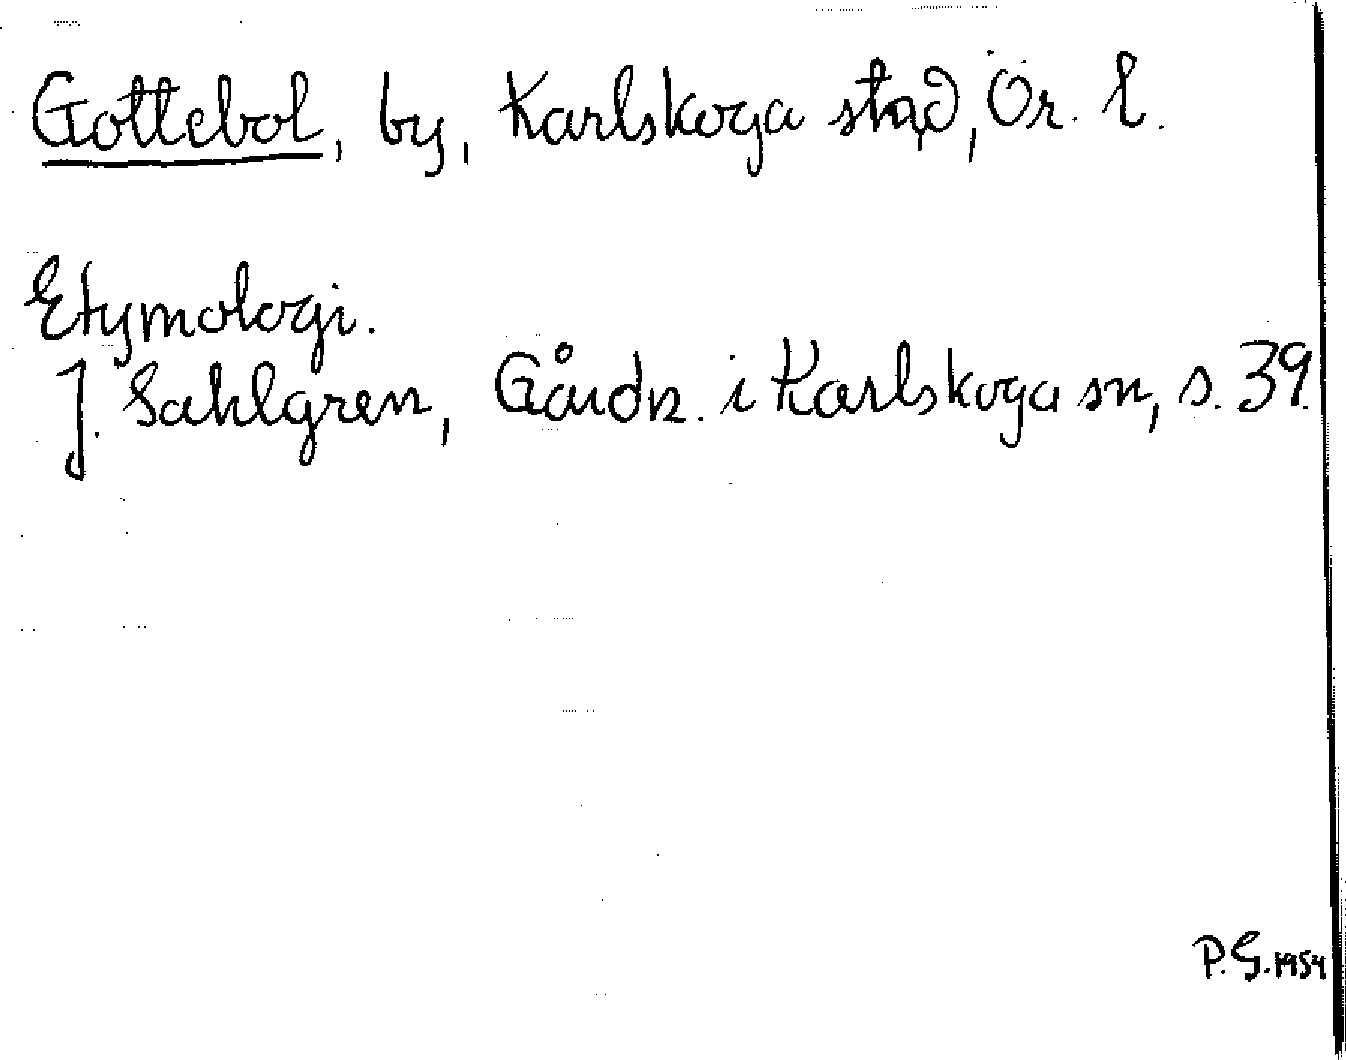 Gottebol, by, Karlskoga stad, Ör. l.
Etymologi.
J. Sahlgren, Gårdn. i Karlskoga sn, s. 39.
P.G. 1954